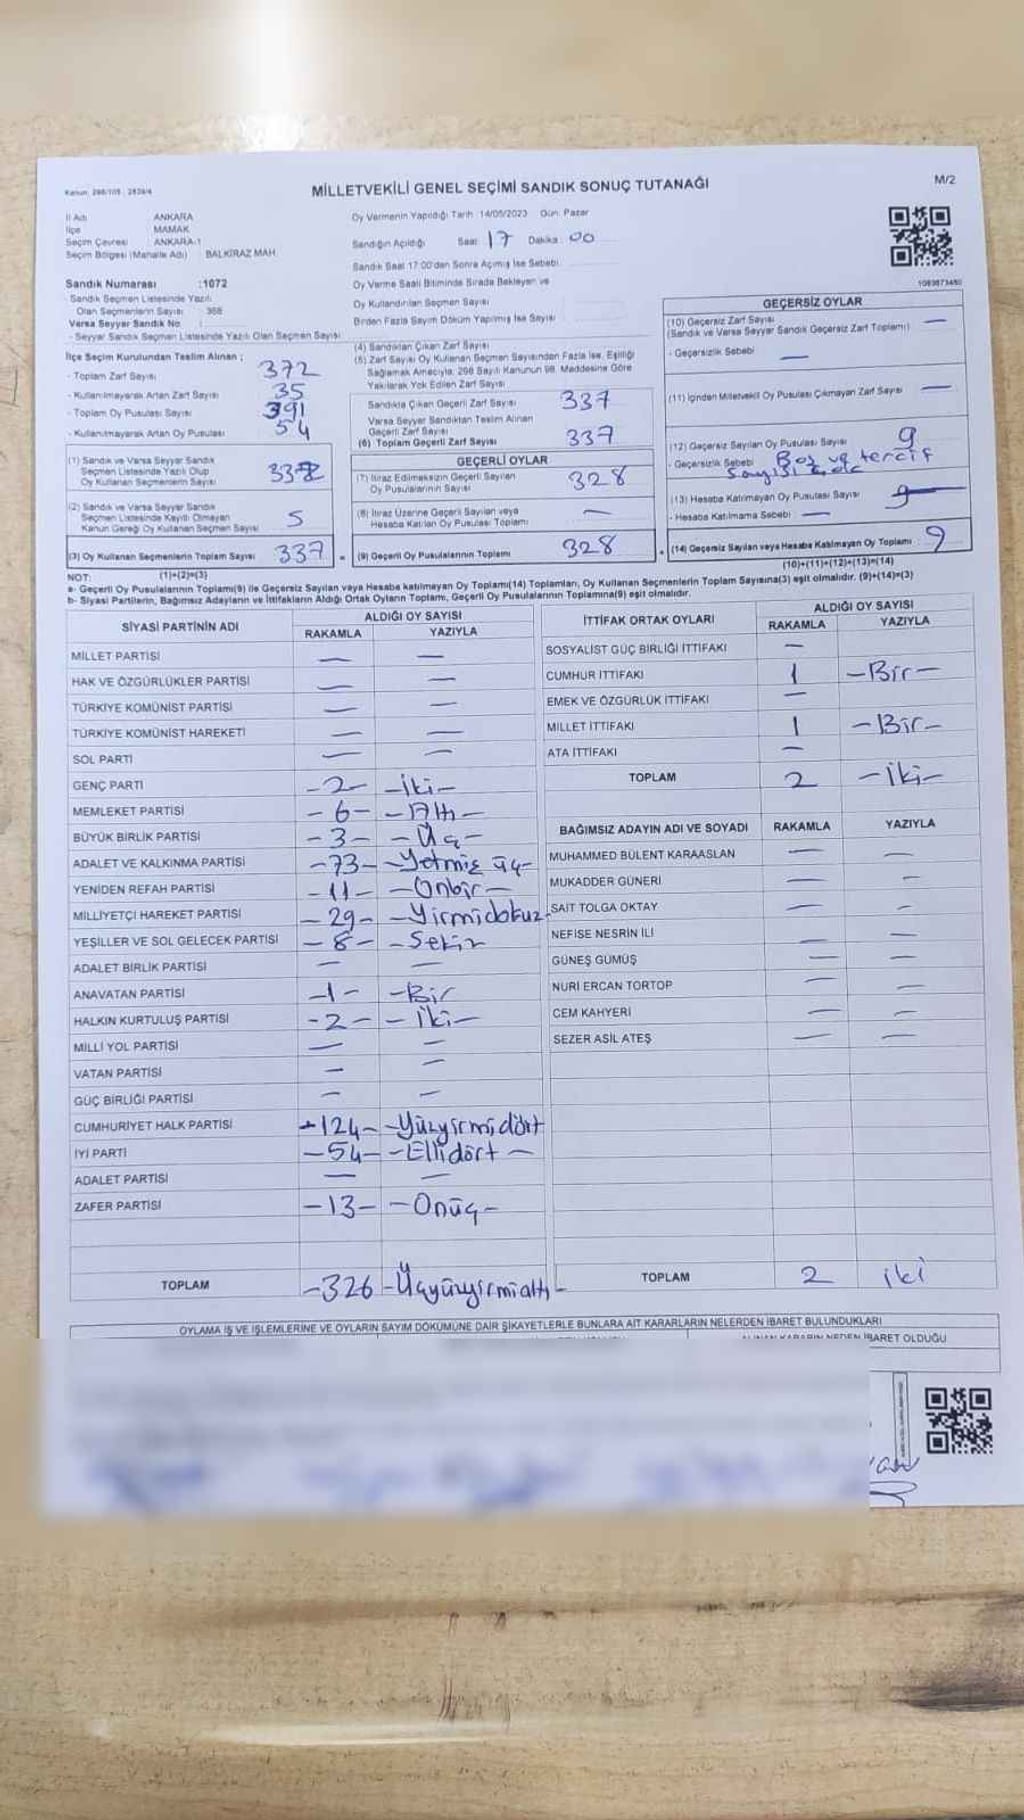 Kanun: 298/105 ; 2839/4
MİLLETVEKİLİ GENEL SEÇİMİ SANDIK SONUÇ TUTANAĞI
M/2
İl Adı : ANKARA
İlçe : MAMAK
Seçim Çevresi : ANKARA-1
Seçim Bölgesi (Mahalle Adı) : BALKİRAZ MAH.
Oy Vermenin Yapıldığı Tarih :14/05/2023 Gün: Pazar
Sandığın Açıldığı Saat: 17 Dakika: 00
Sandık Saat 17:00'den Sonra Açılmış İse Sebebi:
Oy Verme Saati Bitiminde Sırada Bekleyen ve
Oy Kullandırılan Seçmen Sayısı
Birden Fazla Sayım Döküm Yapılmış İse Sayısı
Sandık Numarası :1072
- Sandık Seçmen Listesinde Yazılı
Olan Seçmenlerin Sayısı : 368
Varsa Seyyar Sandık No :
- Seyyar Sandık Seçmen Listesinde Yazılı Olan Seçmen Sayısı
İlçe Seçim Kurulundan Teslim Alınan ;
- Toplam Zarf Sayısı 372
- Kullanılmayarak Artan Zarf Sayısı 35
- Toplam Oy Pusulası Sayısı 391
- Kullanılmayarak Artan Oy Pusulası 54
(1) Sandık ve Varsa Seyyar Sandık
Seçmen Listesinde Yazılı Olup
Oy Kullanan Seçmenlerin Sayısı 332
(2) Sandık ve Varsa Seyyar Sandık
Seçmen Listesinde Kayıtlı Olmayan
Kanun Gereği Oy Kullanan Seçmen Sayısı 5
(3) Oy Kullanan Seçmenlerin Toplam Sayısı 337
(1)+(2)=(3)
(4) Sandıktan Çıkan Zarf Sayısı
(5) Zarf Sayısı Oy Kullanan Seçmen Sayısından Fazla İse, Eşitliği
Sağlamak Amacıyla, 298 Sayılı Kanunun 98. Maddesine Göre
Yakılarak Yok Edilen Zarf Sayısı
Sandıkta Çıkan Geçerli Zarf Sayısı 337
Varsa Seyyar Sandıktan Teslim Alınan
Geçerli Zarf Sayısı
(6) Toplam Geçerli Zarf Sayısı 337
GEÇERLİ OYLAR
(7) İtiraz Edilmeksizin Geçerli Sayılan
Oy Pusulalarının Sayısı 328
(8) İtiraz Üzerine Geçerli Sayılan veya
Hesaba Katılan Oy Pusulası Toplamı —
= (9) Geçerli Oy Pusulalarının Toplamı 328
1083873450
GEÇERSİZ OYLAR
(10) Geçersiz Zarf Sayısı —
(Sandık ve Varsa Seyyar Sandık Geçersiz Zarf Toplamı)
- Geçersizlik Sebebi —
(11) İçinden Milletvekili Oy Pusulası Çıkmayan Zarf Sayısı —
(12) Geçersiz Sayılan Oy Pusulası Sayısı 9
- Geçersizlik Sebebi Boş ve tercih
sayısı
(13) Hesaba Katılmayan Oy Pusulası Sayısı 9
- Hesaba Katılmama Sebebi —
+ (14) Geçersiz Sayılan veya Hesaba Katılmayan Oy Toplamı : 9
(10)+(11)+(12)+(13)=(14)
NOT:
a- Geçerli Oy Pusulalarının Toplamı(9) ile Geçersiz Sayılan veya Hesaba katılmayan Oy Toplamı(14) Toplamları, Oy Kullanan Seçmenlerin Toplam Sayısına(3) eşit olmalıdır. (9)+(14)=(3)
b- Siyasi Partilerin, Bağımsız Adayların ve İttifakların Aldığı Ortak Oyların Toplamı, Geçerli Oy Pusulalarının Toplamına(9) eşit olmalıdır.
SİYASİ PARTİNİN ADI ALDIĞI OY SAYISI
RAKAMLA YAZIYLA
MİLLET PARTİSİ — —
HAK VE ÖZGÜRLÜKLER PARTİSİ — —
TÜRKİYE KOMÜNİST PARTİSİ — —
TÜRKİYE KOMÜNİST HAREKETİ — —
SOL PARTİ — —
GENÇ PARTİ -2- -İki-
MEMLEKET PARTİSİ -6- -Altı-
BÜYÜK BİRLİK PARTİSİ -3- -Üç-
ADALET VE KALKINMA PARTİSİ -73- -Yetmiş üç-
YENİDEN REFAH PARTİSİ -11- -Onbir-
MİLLİYETÇİ HAREKET PARTİSİ -29- -Yirmidokuz-
YEŞİLLER VE SOL GELECEK PARTİSİ -8- -Sekiz
ADALET BİRLİK PARTİSİ — —
ANAVATAN PARTİSİ -1- -Bir
HALKIN KURTULUŞ PARTİSİ -2- -İki-
MİLLİ YOL PARTİSİ — —
VATAN PARTİSİ — —
GÜÇ BİRLİĞİ PARTİSİ — —
CUMHURİYET HALK PARTİSİ -124- -Yüzyirmidört
İYİ PARTİ -54- -Ellidört-
ADALET PARTİSİ — —
ZAFER PARTİSİ -13- -Onüç-
TOPLAM -326 -Üçyüzyirmialtı-
İTTİFAK ORTAK OYLARI ALDIĞI OY SAYISI
RAKAMLA YAZIYLA
SOSYALİST GÜÇ BİRLİĞİ İTTİFAKI —
CUMHUR İTTİFAKI 1 -Bir-
EMEK VE ÖZGÜRLÜK İTTİFAKI —
MİLLET İTTİFAKI 1 -Bir-
ATA İTTİFAKI —
TOPLAM 2 -İki-
BAĞIMSIZ ADAYIN ADI VE SOYADI RAKAMLA YAZIYLA
MUHAMMED BÜLENT KARAASLAN — —
MUKADDER GÜNERİ — —
SAİT TOLGA OKTAY — —
NEFİSE NESRİN İLİ — —
GÜNEŞ GÜMÜŞ — —
NURİ ERCAN TORTOP — —
CEM KAHYERİ — —
SEZER ASİL ATEŞ — —
TOPLAM 2 iki
OYLAMA İŞ VE İŞLEMLERİNE VE OYLARIN SAYIM DÖKÜMÜNE DAİR ŞİKAYETLERLE BUNLARA AİT KARARLARIN NELERDEN İBARET BULUNDUKLARI
ALINAN KARARIN NEDEN İBARET OLDUĞU